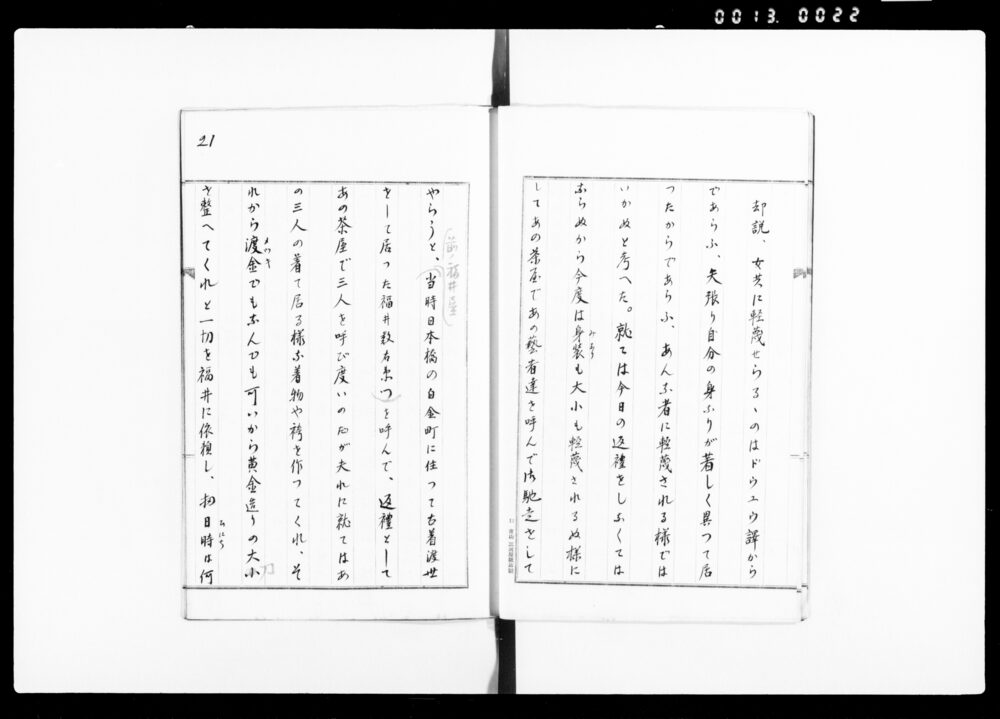 0013.0022
却説、女共に軽蔑せらるゝのはドウユウ譯から
であらふ、矢張り自分の身ふりが著しく異つて居
つたからであらふ、あんな者に軽蔑される様では
いかぬと考へた。就ては今日の返禮をしなくては
ならぬから今度は身装も大小も軽蔑されるぬ様に
みなり
してあの茶屋であの藝者達を呼んで御馳走をして
21
やらうと、(当時日本橋の白金町に住つて古着渡世
前ノ福井屋
をして居つた福井数右衛门)を呼んで、返禮として
あの茶屋で三人を呼び度いのだが夫れに就てはあ
の三人の着て居る様な着物や袴を作つてくれ、そ
れから渡金でもなんでも可いから黄金造りの大小
めつき
刀
を整へてくれと一切を福井に依頼し、扨日時は何
ひにち